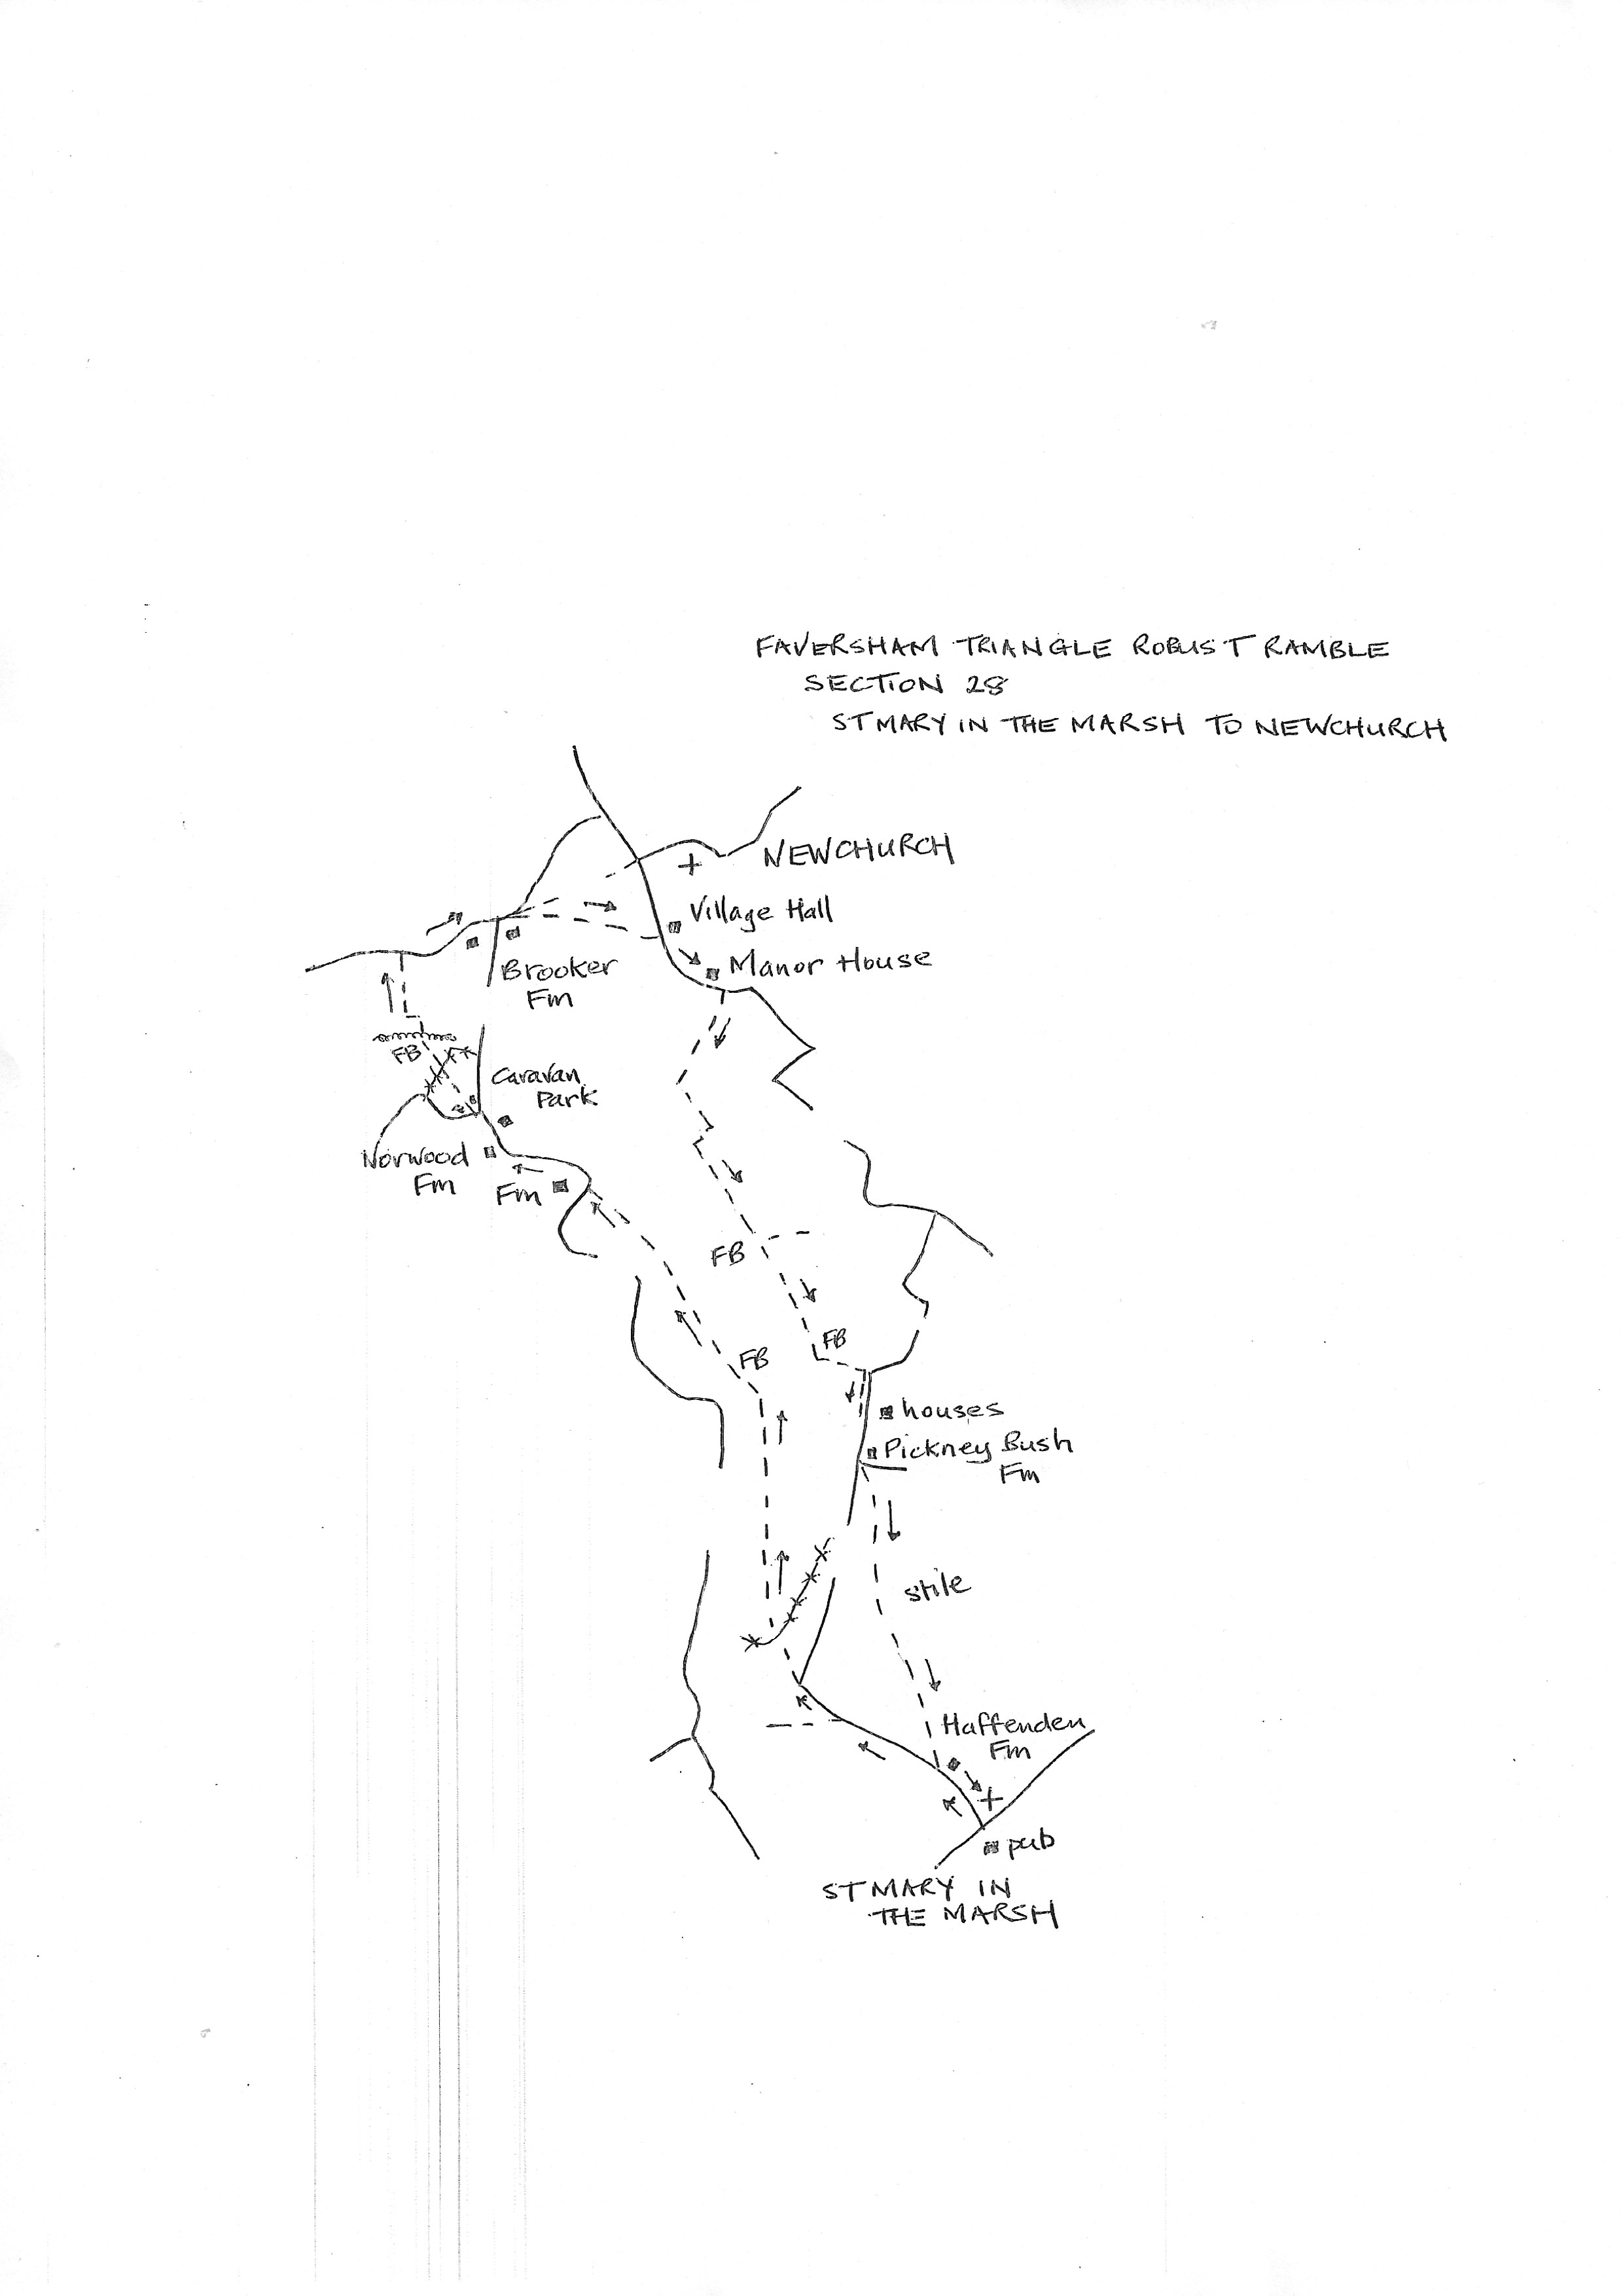 FAVERSHAM TRIANGLE ROBUST RAMBLE
SECTION 28
ST MARY IN THE MARSH TO NEWCHURCH
NEWCHURCH
Village Hall
Manor House
Brooker
Fm
FB
Caravan
Park
Norwood
Fm
Fm
FB
FB
FB
houses
Pickney Bush
Fm
stile
Haffenden
Fm
pub
ST MARY IN
THE MARSH